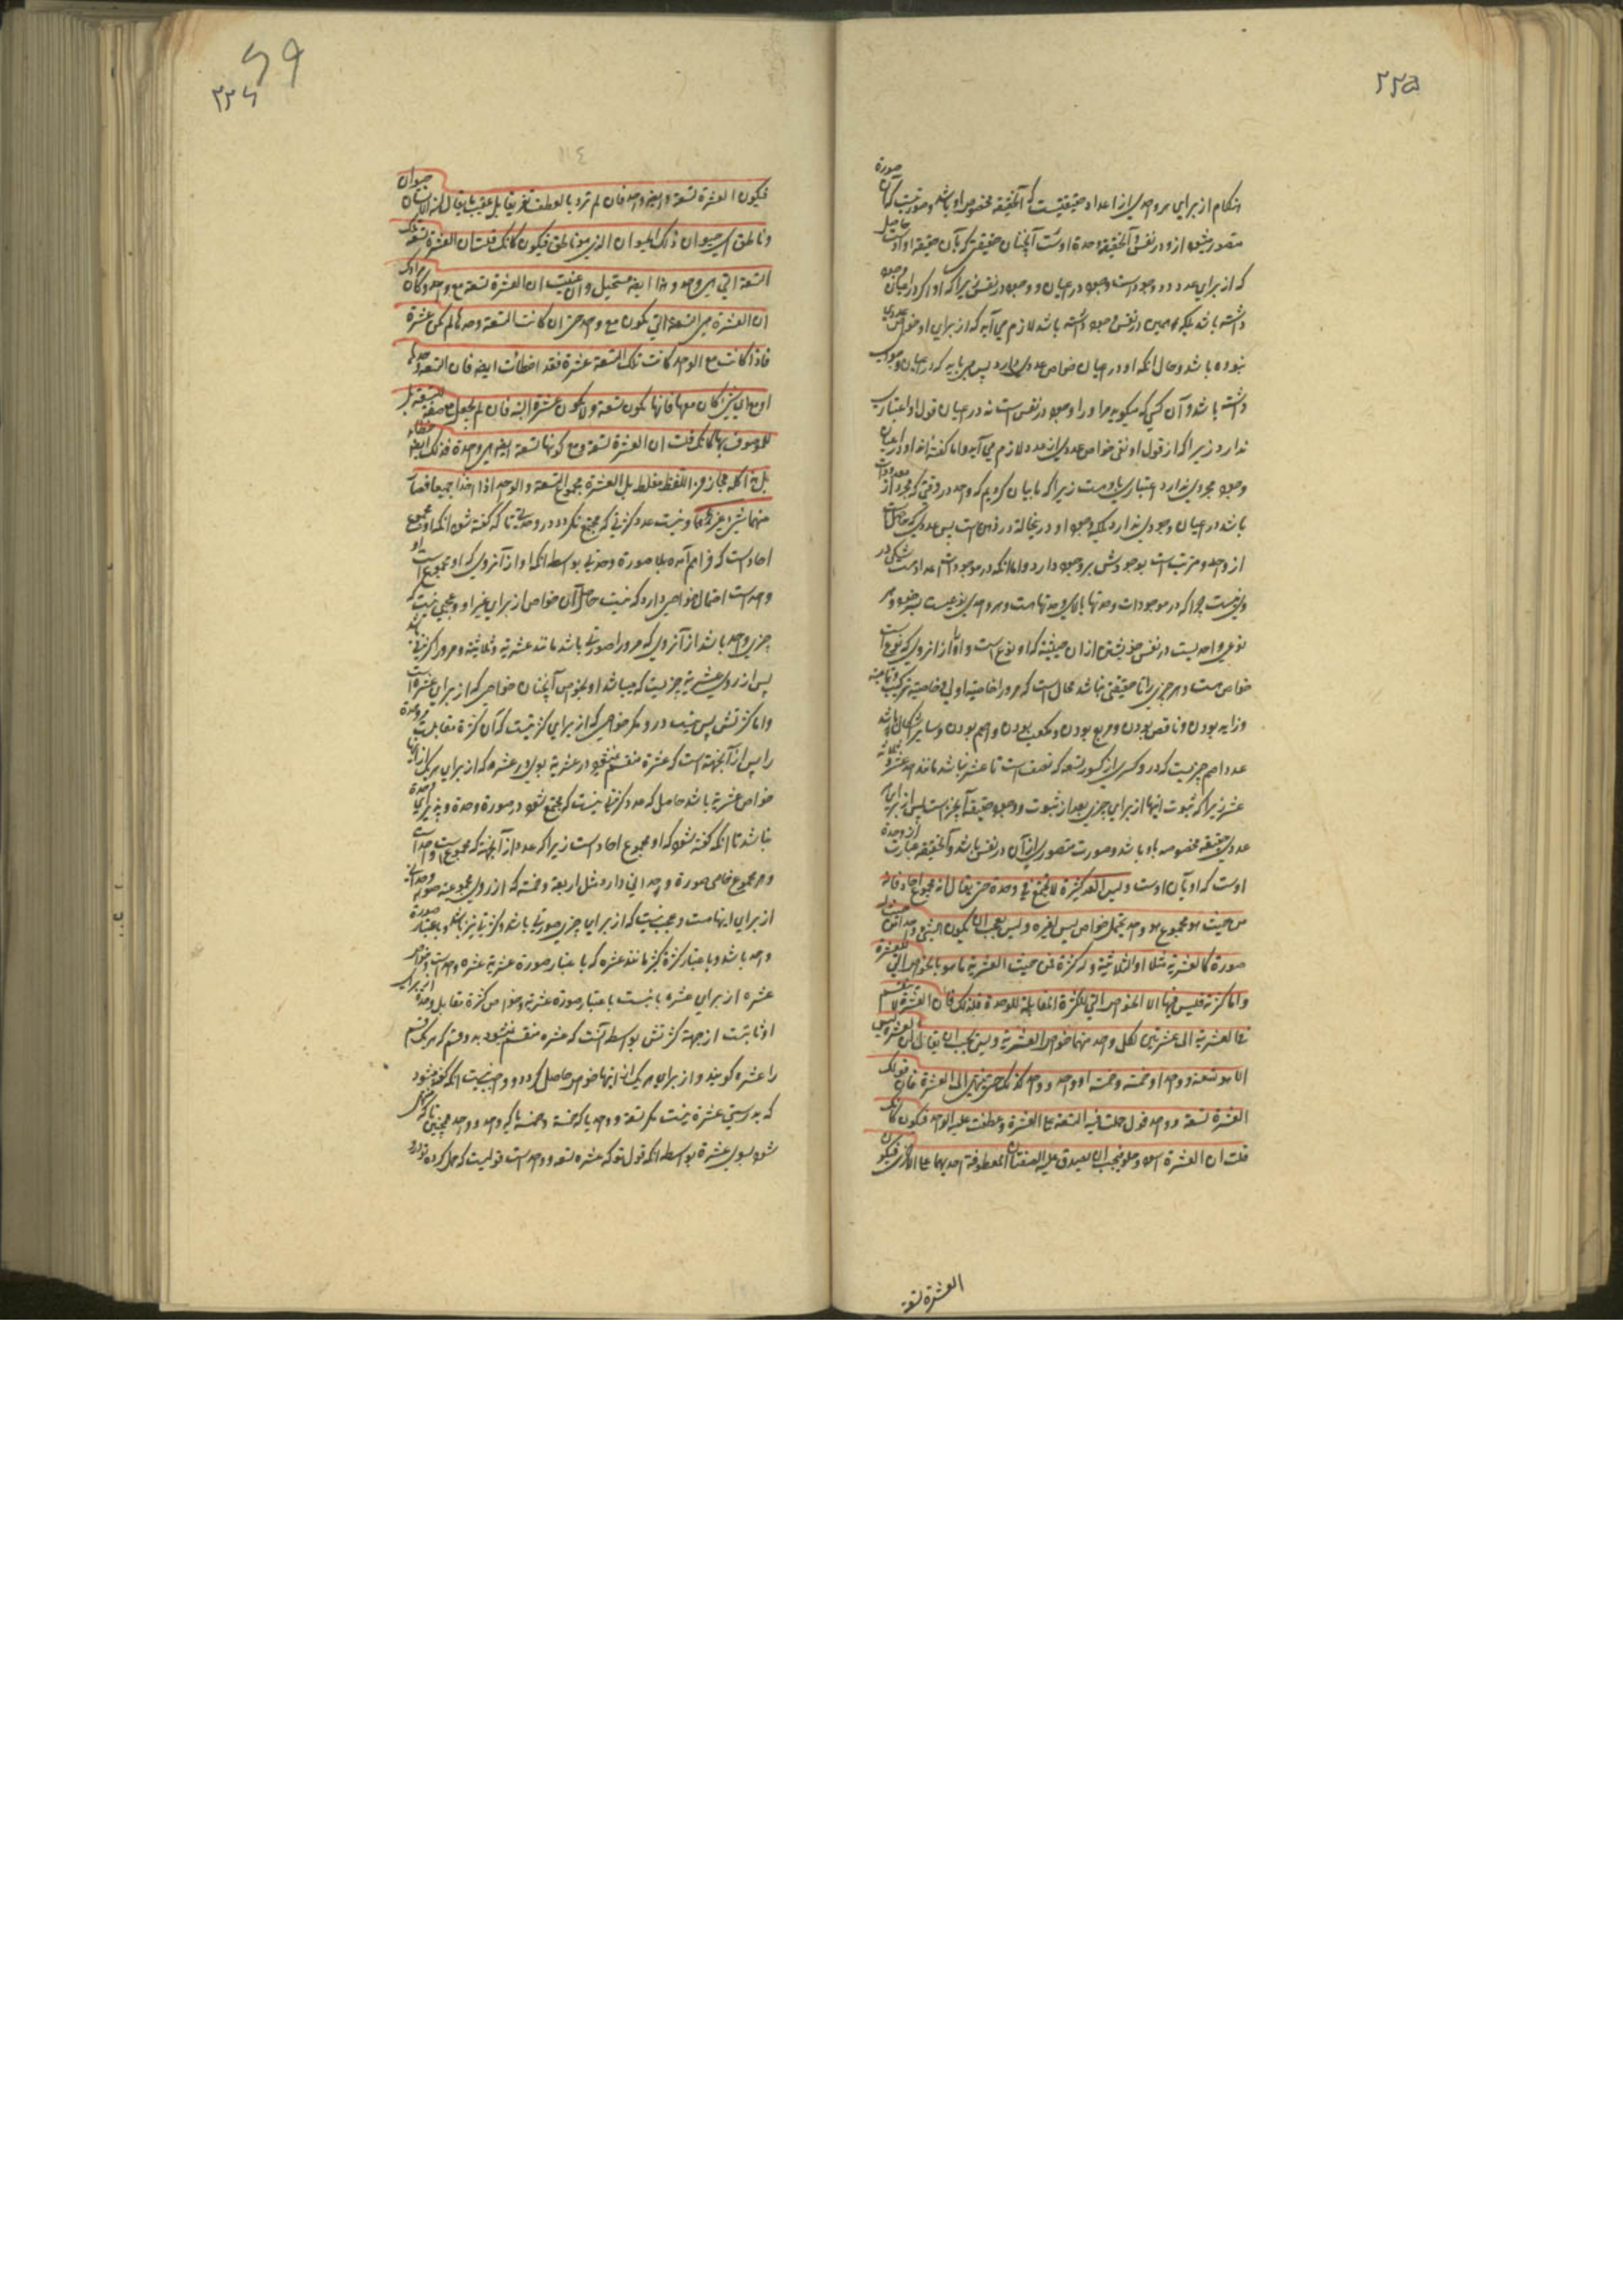 ٢٢۵
احکام از برای هر واحدی از اعداد حقیقتیست که آنحقیقه مخصوص او باشد و صورتیست که آن صورة
متصور میشود ازو در نفس و آنحقیقه وحدة اوست آنچنان حقیقتی که بآن حقیقه او اوست
که از برای عدد وجود است وجود در اعیان و وجود در نفس زیرا که او اگر در اعیان وجود
داشته باشد بلکه همین در نفس وجود داشته باشد لازم می آید که از برای او خواص عددی
نبوده باشد و حال آنکه او در اعیان خواص عددی دارد پس می باید که در اعیان وجود
داشته باشد و آن کسی که میگوید مر او را وجود در نفس است نه در اعیان قول او اعتباری
ندارد زیرا که از قول او نفی خواص عددی از عدد لازم می آید و اما گفته اند او در اعیان
وجود مجردی ندارد اعتباری باو هست زیرا که ما بیان کردیم که واحد در وقتی که مجرد از
باشد در اعیان وجودی ندارد بلکه وجود او در اینحالة در ذهن است پس عددی که حاصل است
از واحد و مرتب است بوجودش بر وجود دارد و اما آنکه در موجودات اعداد است شکی در
وی نیست چرا که در موجودات وحدتها بالای وحدتها است و هر واحدی
نوعی واحدیست در نفس خویشتن از آن حیثیته که او نوع است و او را از آنروی که نوع است
خواص است و هر چیزی را تا حقیقتی نباشد محال است که مر او را خاصیة اولی و خاصیة ترکیب و تمامیة
و زاید بودن و ناقص بودن و مربع بودن و مکعب بودن و اصم بودن و سایر اشکال باشد
عدد اصم چیزیست که درو کسری از کسور تسعه که نصف است تا عشر نباشد مانند احد عشر و ثلثه
عشر زیرا که ثبوت اینها از برای چیزی بعد از ثبوت وجود حقیقه آنچیز است پس از برای هر
عددی حقیقه مخصوصه باو باشد و صورت متصوری از آن در نفس باشد و آنحقیقه عبارت از وحدة
اوست که او بآن اوست ولیس العدد کثیرة لا تجتمع فی وحدة حتی یقال انه مجموع احاد فانه
من حیث هو مجموع هو واحد یحتمل خواص لیس لغیره ولیس بعجب ان یکون الشئ واحدا من حیث له
صورة کالعشریة مثلا او الثلاثیة وله کثرة فمن حیث العشریة ما هو بالخواص التی للعشرة
واما کثرته فلیس فیها الا الخواص التی للکثرة المقابلة للوحدة فلذلک فان العشرة لا تنقسم
فی العشریة الی عشرتین لکل واحد منهما خواص العشریة ولیس یجب ان یقال ان العشرة لیس
الا هو تسعة وواحد او خمسة وخمسة او واحد وواحد کذلک حتی ینتهی الی العشرة فان قولک
العشرة تسعة وواحد قول حملت فیه التسعة علی العشرة وعطفت علیه الواحد فتکون کانک
قلت ان العشرة اسود وحلو فیجب ان یصدق علیه الصفتان المعطوفة احدیهما علی الاخری فیکون
العشرة تسعة
٢٢٦
٥٩
فیکون العشرة تسعة وایضا واحد فان لم ترد بالعطف تعریفا بل عنیت ما یقال ان الانسان حیوان
وناطق ای حیوان ذلک الحیوان الذی هو ناطق فیکون کانک قلت ان العشرة تسعة تلک
التسعة التی هی واحد وهذا ایضا مستحیل وان عنیت ان العشرة تسعة مع واحد وکان مرادک
ان العشرة هی التسعة التی یکون مع واحد حتی ان کانت التسعة وحدها لم تکن عشرة
فاذا کانت مع الواحد کانت تلک التسعة عشرة فقد اخطأت ایضا فان التسعة وحدها
او مع ای شئ کان معها فانها تکون تسعة ولا تکون عشرة البتة فان لم تجعل مع صفة للتسعة بل
للموصوف بها کانک قلت ان العشرة تسعة ومع کونها تسعة ایضا هی واحدة فذلک ایضا خطاء
بل هذا کله مجاز من اللفظ مغلط بل العشرة مجموع التسعة والواحد اذا اخذا جمیعا فصار
منهما شئ غیرهما و نیست عدد کثرتی که مجتمع نگردد در وحدتی تا که گفته شود آنکه او مجموع
احاد است که فراهم آمده بلا صورة وحدتی بواسطه آنکه او از آنروی که او مجموع است او
واحد است احتمال خواصی دارد که نیست حاصل آن خواص از برای غیر او و عجبی نیست که
چیزی واحد باشد از آنروی که مر او را صورتی باشد مانند عشریة و ثلاثیة و مر او را کثرتی باشد
پس از روی عشریة چیزیست که میباشد او بخواص آنچنان خواصی که از برای عشرة است
و اما کثرتش پس نیست درو مگر خواصی که از برای کثرتیست که آن کثرة مقابلست مر وحدة
را پس از آنجهة است که عشرة منقسم نمیشود در عشریة بدو عشره که از برای هر یک از اینها
خواص عشریة باشد حاصل که عدد کثرتها نیست که مجتمع نشود در صورة وحدة و پذیرای وحدة
نباشد تا آنکه گفته شود که او مجموع احاد است زیرا که عدد از آنجهة که مجموع است واحد است
و هر مجموع خاصی صورة وحدانی دارد مثل اربعة و خمسة که از روی مجموعیة صورة وحدانی
از برای اینها هست و عجب نیست که از برای چیزی صورتی باشد و کثرتی نیز باشد و باعتبار صورة
واحد باشد و باعتبار کثرة کثیر مانند عشره که باعتبار صورة عشریة عشره واحد است و خواص
عشره از برای عشره ثابتست باعتبار صورة عشریة و خواص کثرة مقابل وحدة از برای
او ثابتست از جهة کثرتش بواسطه آنست که عشره منقسم نمیشود بدو قسم که هر یک قسم
را عشره گویند و از برای هر یک از اینها خواص حاصل گردد و واجب نیست آنکه گفته میشود
که بدرستی عشرة نیست مگر تسعة و واحد یا که خمسة و خمسة یا که واحد و واحد همچنین تا که منتهی
شود بسوی عشرة بواسطه آنکه قول تو که عشره تسعه و واحد است قولیست که حمل کرده تو درو